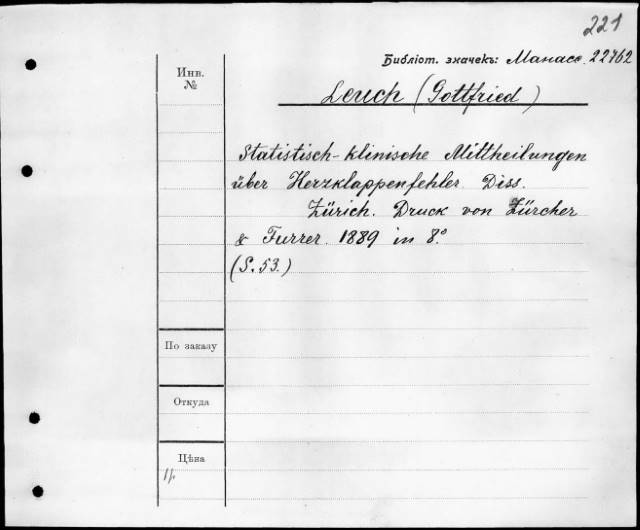 221
Библіот. значекъ: Манасс. 22762
Инв.
№
Leuch (Gottfried)
Statistisch-klinische Mittheilungen
über Herzklappenfehler. Diss.
Zürich. Druck von Zürcher
& Furrer. 1889 in 8.°
(S. 53.)
По заказу
Откуда
Цѣна